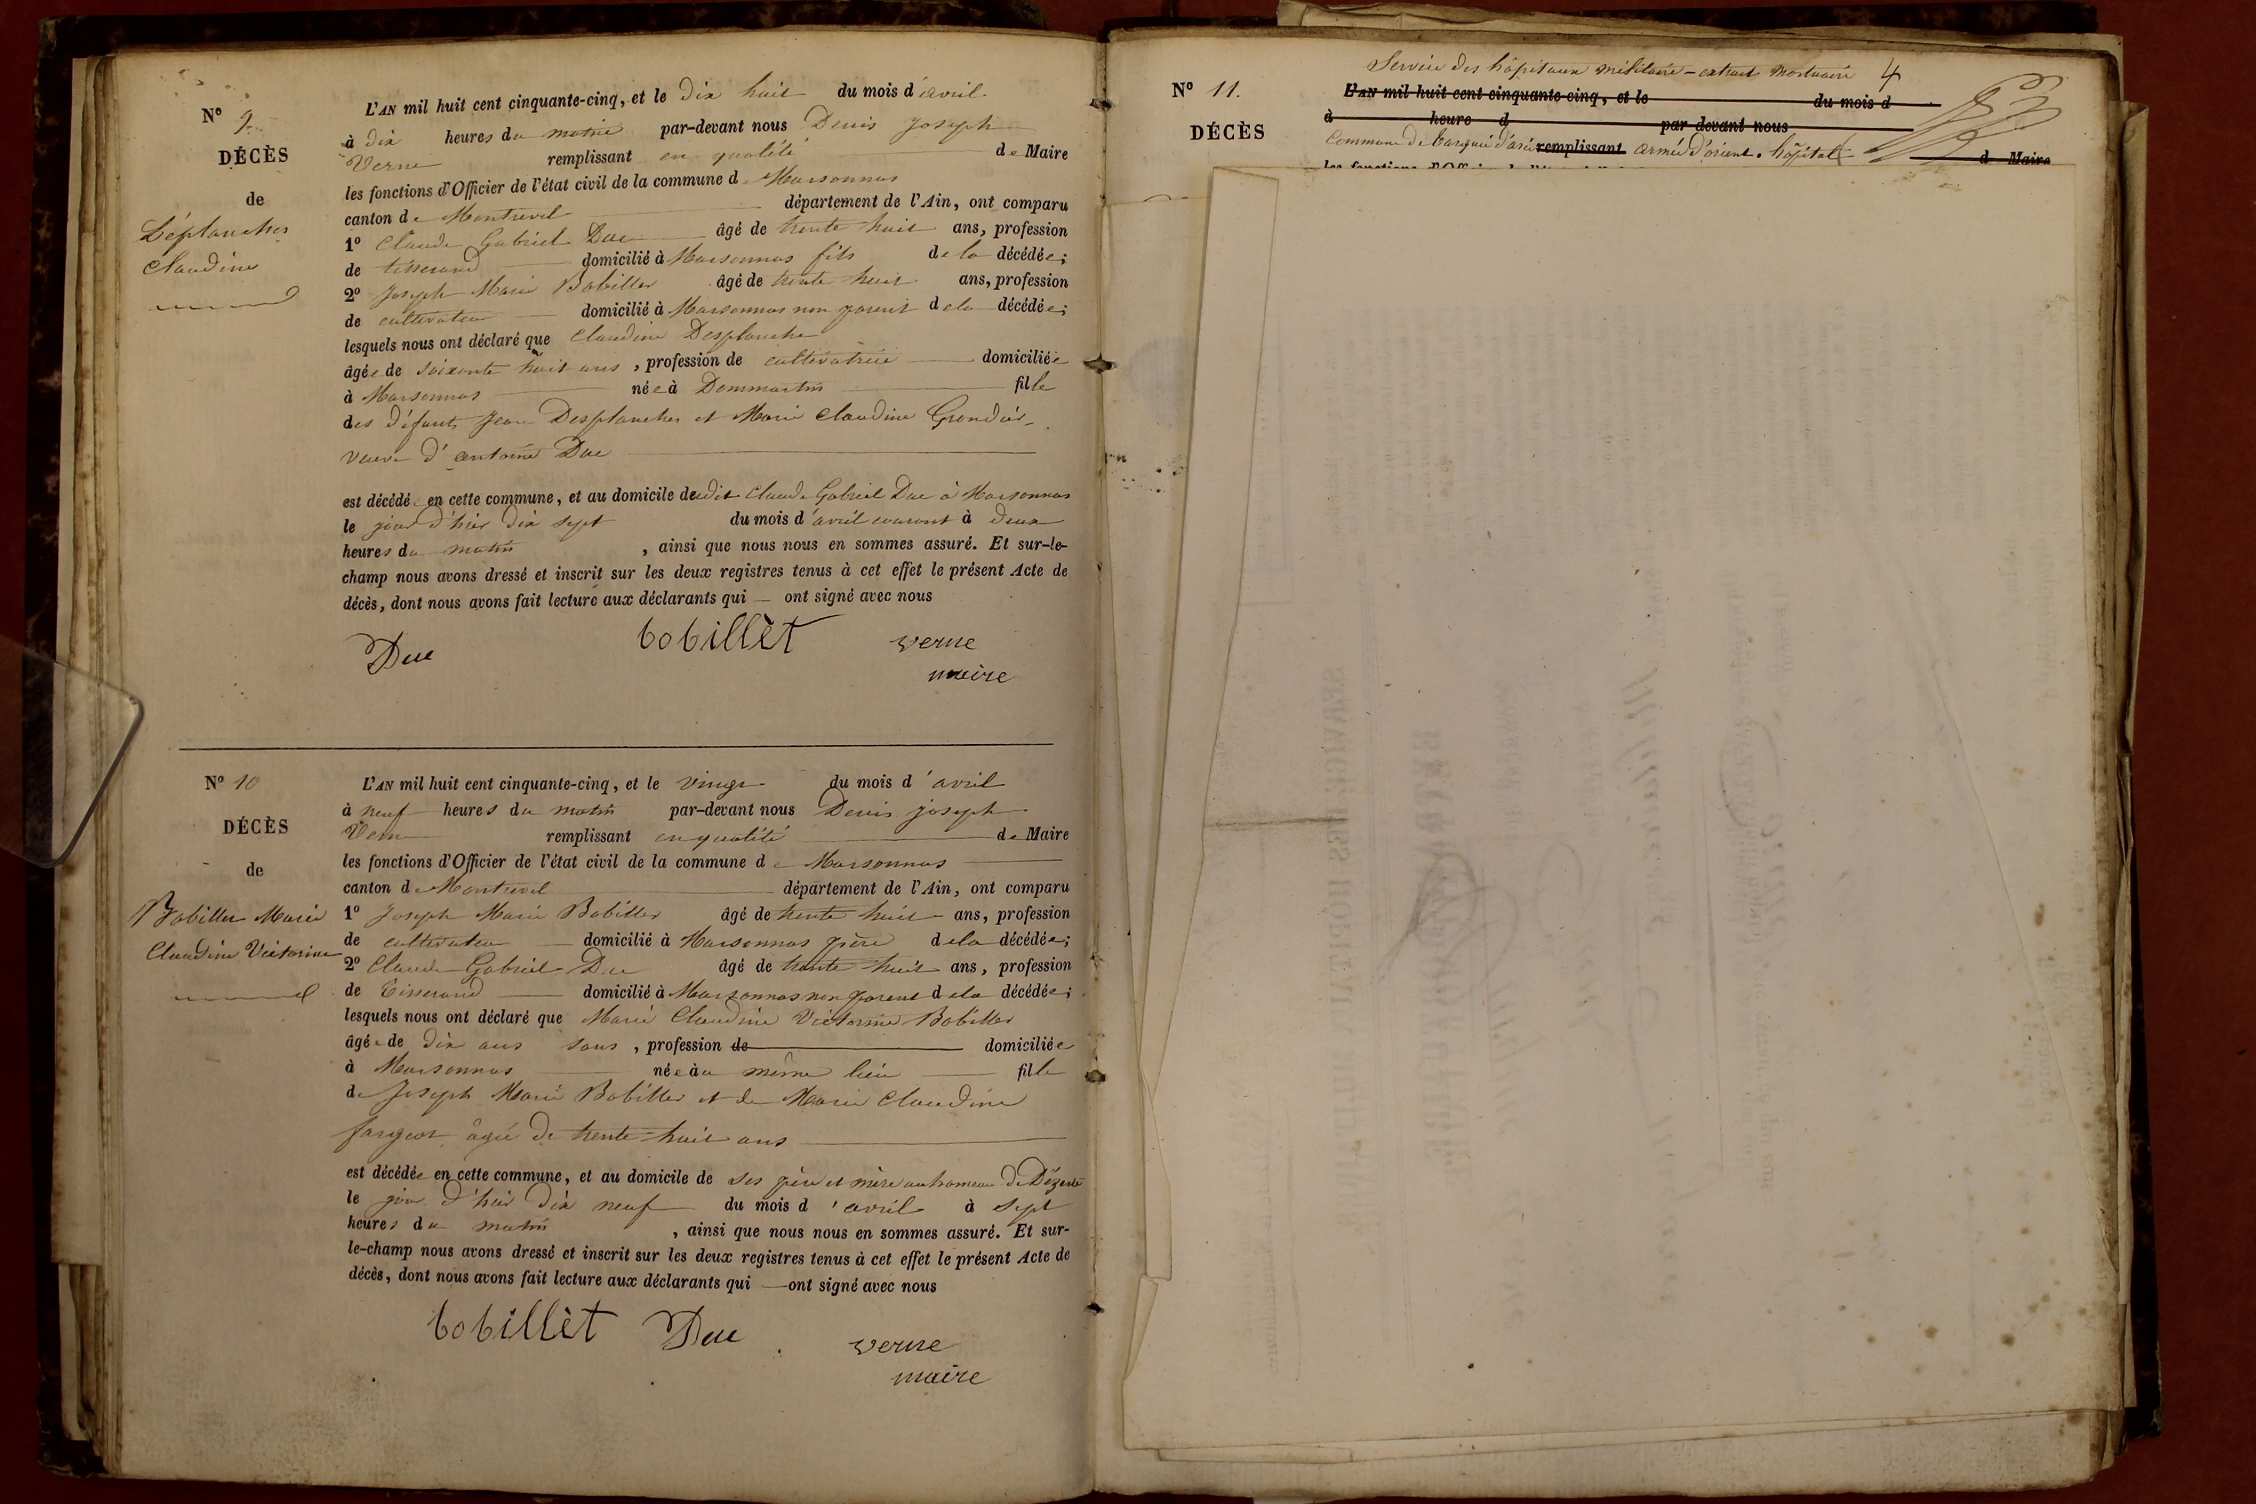 Nº 9.
DÉCÈS
de
Déplanches
Claudine
L'AN mil huit cent cinquante-cinq, et le dix huit du mois d'avril
à dix heures du matin par-devant nous Denis Joseph
Verne remplissant en qualité de Maire
les fonctions d'Officier de l'état civil de la commune de Marsonnas
canton de Montrevel département de l'Ain, ont comparu
1º Claude Gabriel Duc âgé de trente huit ans, profession
de tisserand domicilié à Marsonnas fils de la décédée;
2º Joseph Marie Bobillet âgé de trente huit ans, profession
de cultivateur domicilié à Marsonnas non parent de la décédée;
lesquels nous ont déclaré que Claudine Desplanche
âgée de soixante huit ans, profession de cultivatrice domiciliée
à Marsonnas née à Dommartin fille
des défunts Jean Desplanches et Marie Claudine
veuve d'antoine Duc
est décédée en cette commune, et au domicile dudit Claude Gabriel Duc à Marsonnas
le jour d'hier dix sept du mois d'avril courant à deux
heures du matin, ainsi que nous nous en sommes assuré. Et sur-le-
champ nous avons dressé et inscrit sur les deux registres tenus à cet effet le présent Acte de
décès, dont nous avons fait lecture aux déclarants qui — ont signé avec nous
Duc bobillèt verne
maire
Nº 10
DÉCÈS
de
Bobillet Marie
Claudine Victorine
L'AN mil huit cent cinquante-cinq, et le vingt du mois d'avril
à neuf heures du matin par-devant nous Denis joseph
Verne remplissant en qualité de Maire
les fonctions d'Officier de l'état civil de la commune de Marsonnas
canton de Montrevel département de l'Ain, ont comparu
1º Joseph Marie Bobillet âgé de trente huit ans, profession
de cultivateur domicilié à Marsonnas père de la décédée;
2º Claude Gabriel Duc âgé de trente huit ans, profession
de Tisserand domicilié à Marsonnas non parent de la décédée;
lesquels nous ont déclaré que Marie Claudine Victorine Bobillet
âgée de dix ans sans, profession de domiciliée
à Marsonnas née au même lieu fille
de Joseph Marie Bobillet et de Marie Claudine
fargeot âgée de trente huit ans
est décédée en cette commune, et au domicile de ses père et mère au hameau de
le jour d'hier dix neuf du mois d'avril à sept
heures du matin, ainsi que nous nous en sommes assuré. Et sur-
le-champ nous avons dressé et inscrit sur les deux registres tenus à cet effet le présent Acte de
décès, dont nous avons fait lecture aux déclarants qui — ont signé avec nous
bobillèt Duc verne
maire
Service des hôpitaux militaire - extrait mortuaire 4
Nº 11.
DÉCÈS
L'AN mil huit cent cinquante-cinq, et le du mois d
à heure d par-devant nous
Commune de remplissant armée d'orient. hôpital d Maire